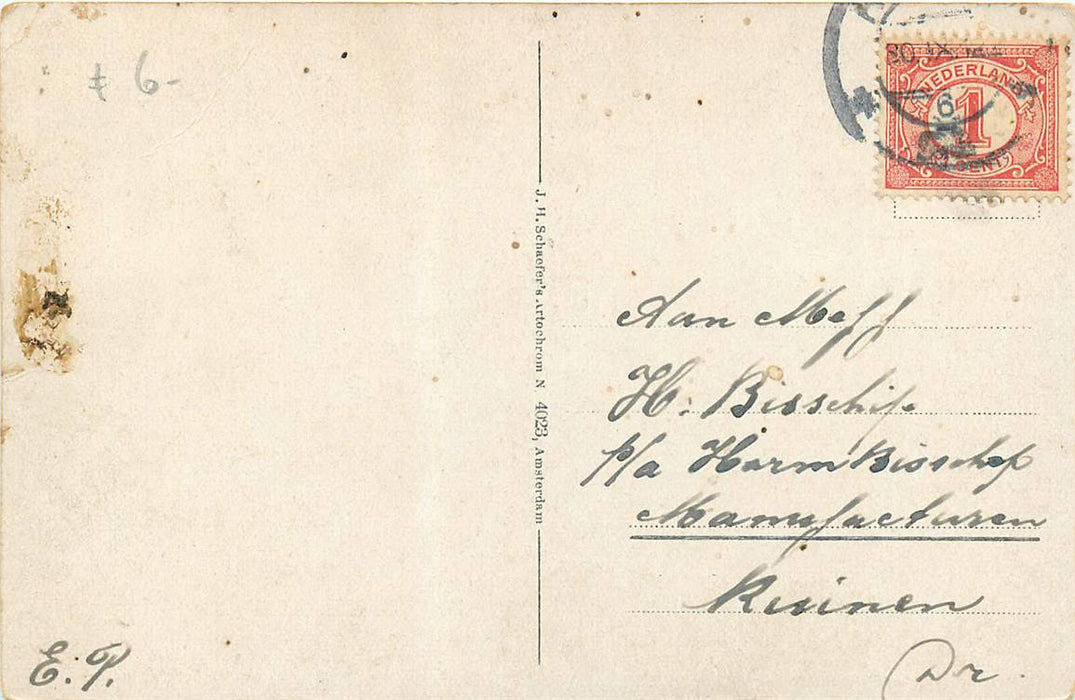 ƒ 6-
NEDERLAND
1
CENT
6
J. H. Schaefer's Artochrom N 4023, Amsterdam
Aan Mejf
H. Bisschop
p/a Harm Bisschop
Manufacturen
Ruinen
Dr.
E. P.